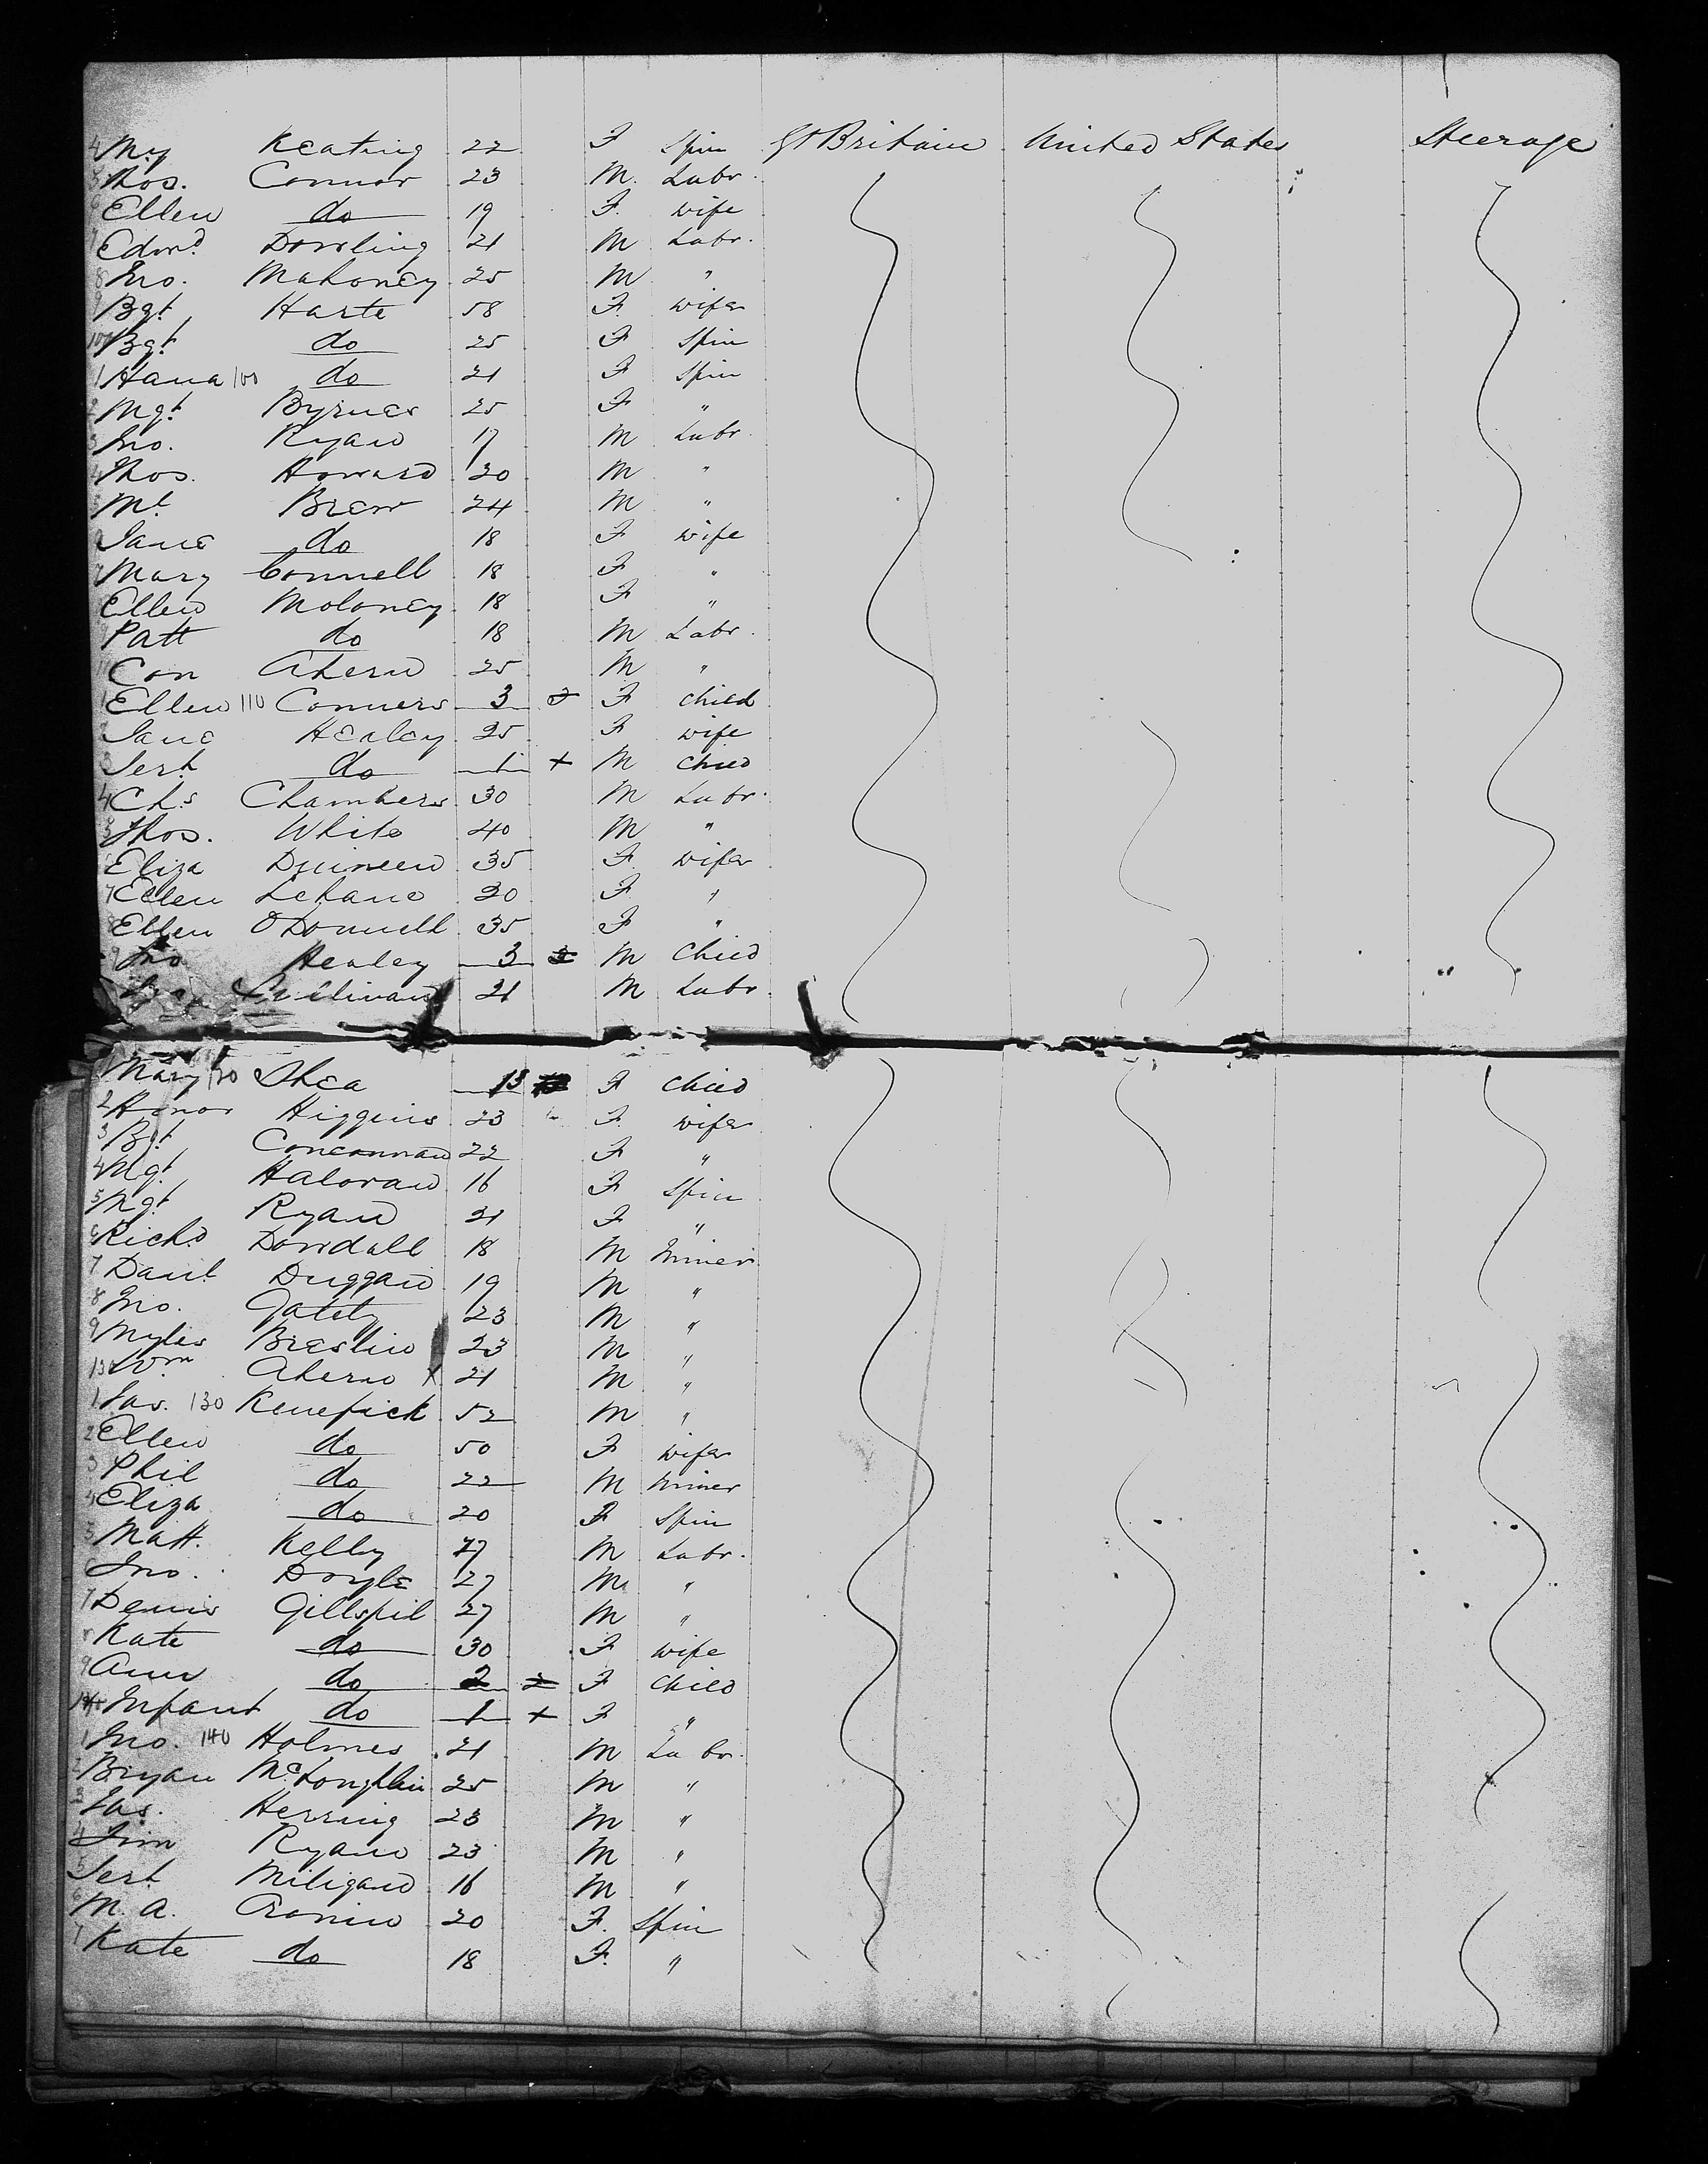 4 My Keating 22 F Spin Gt Britain United States Steerage
5 Thos. Connor 23 M. Labr.
6 Ellen do 19 F. wife
7 Edwd. Dowling 21 M Labr.
8 Jno. Mahoney 25 M "
9 Bgt. Harte 58 F. wife
100 Bgt. do 25 F Spin
1 Hana 100 do 21 F Spin
2 Mgt. Byrnes 25 F "
3 Jno. Ryan 17 M Labr.
4 Thos. Howard 20 M "
5 Ml. Brew 24 M "
6 Jane do 18 F wife
7 Mary Connell 18 F "
8 Ellen Moloney 18 F "
9 Patt do 18 M Labr.
Con Ahern 25 M "
1 Ellen 110 Conners 3 F Child
2 Jane Healey 25 F wife
3 Jert. do 1 + M Child
4 Chs Chambers 30 M Labr.
5 Thos. White 40 M "
6 Eliza Duineen 35 F. wife
7 Ellen Lehane 30 F "
8 Ellen O'Donnell 35 F "
9 Jno Healey 3 3 M Child
Sullivan 21 M Labr.
Mary 120 Shea 13 F Child
2 Honor Higgins 23 F. wife
3 Bgt. Concannan 22 F "
4 Mgt. Haloran 16 F Spin
5 Mgt. Ryan 21 F "
6 Richd. Dowdall 18 M Miner
7 Danl Duggan 19 M "
8 Jno. Gately 23 M "
9 Myles Breslin 23 M "
130 Wm Ahern X 21 M "
1 Jas. 130 Kenefick 52 M "
2 Ellen do 50 F wife
3 Phil do 22 M Miner
4 Eliza do 20 F Spin
5 Matt. Kelly 27 M Labr.
6 Jno. Doyle 27 M "
7 Denis Gillspil 27 M "
8 Kate do 30 F wife
9 Ann do 2 2 F Child
140 Infant do 1 + F "
1 Jno. 140 Holmes 21 M Labr.
2 Bryan McLoughlin 25 M "
3 Jas. Herring 23 M "
4 Tim Ryan 23 M "
5 Jert Miligan 16 M "
6 M. A. Cronin 20 F. Spin
7 Kate do 18 F. "